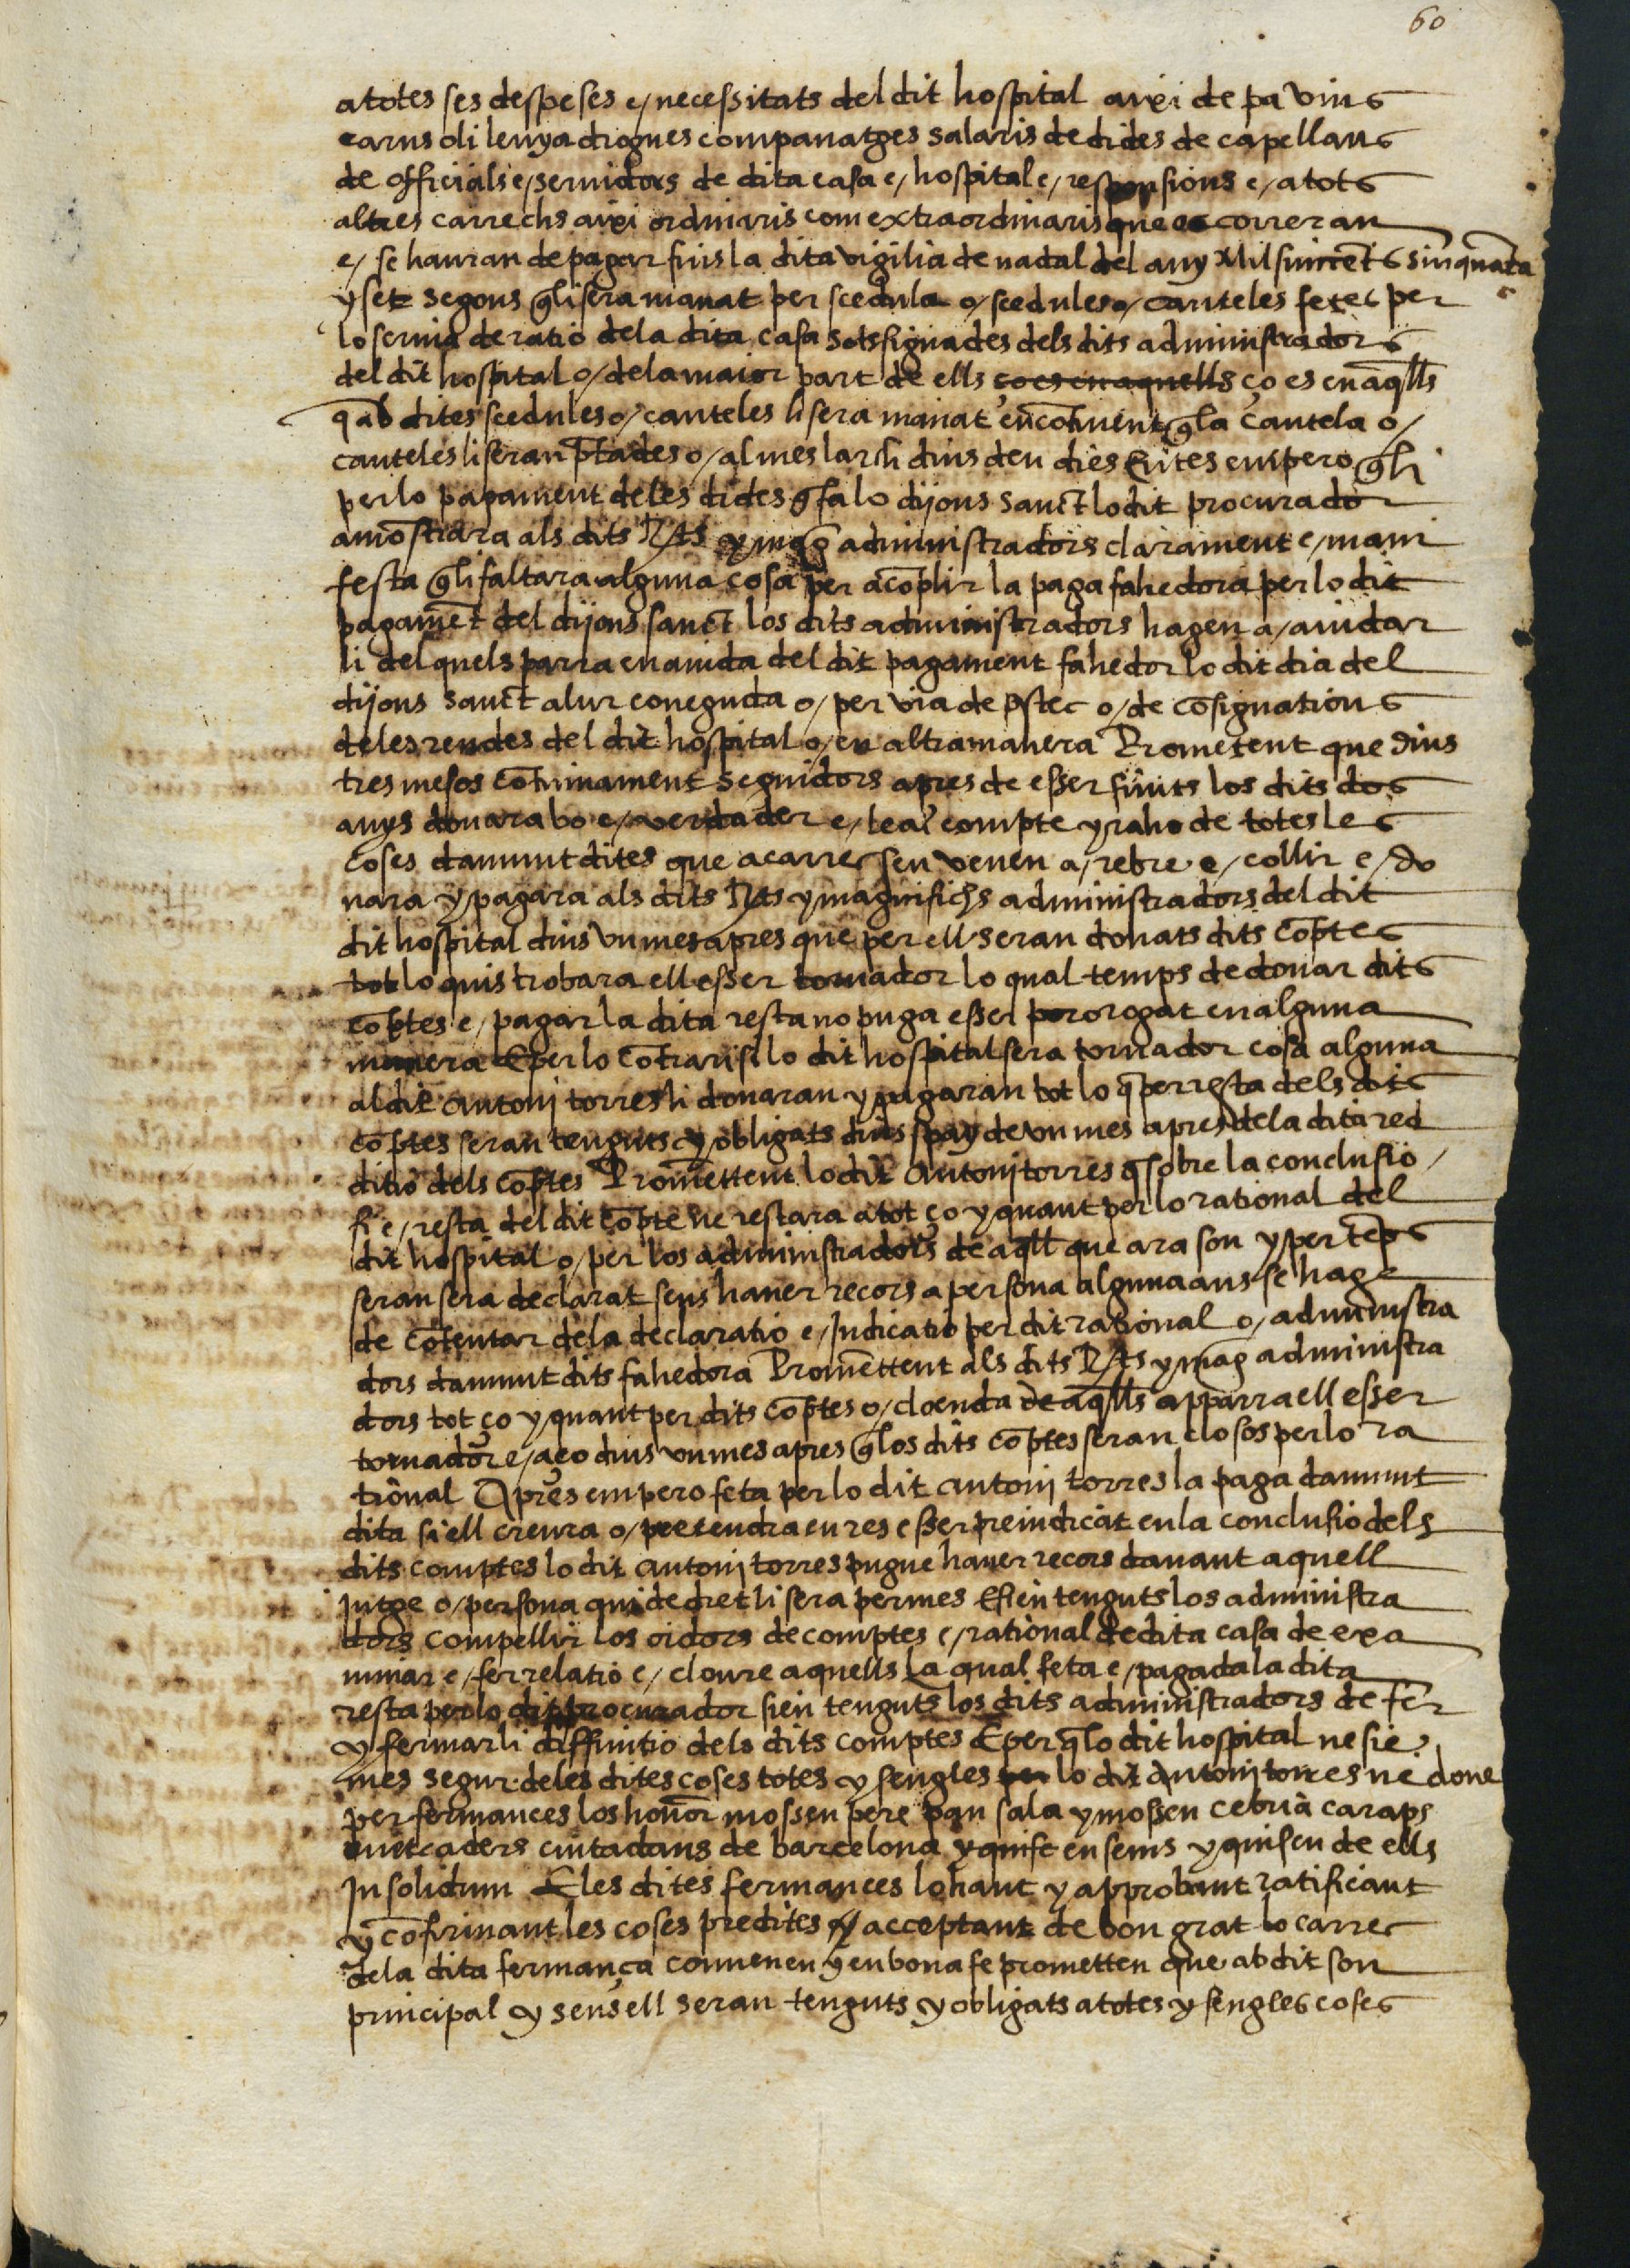 60
atotes ses despeses e/ necessitats del dit hospital axi de pa vins
carns oli lenya drogues companatges salaris de dides de capellans
de officials e/ seruidors de dita casa e/ hospital e/ responsions e/ atots
altres carrechs axi ordinaris com extraordinaris que correran
e/ se hauran de pagar fins la dita vigilia de nadal del any Mil sincẽts sinquãta
y set segons q̃ li sera manat per scedula o/ scedules o/ cauteles fetes per
lo scriua de ratio dela dita casa sotssignades dels dits administradors
del dit hospital o/ dela maior part de ells ço es en aquells ço es en aq̃lls
q̃ ab dites scedules o/ cauteles li sera manat encõtinent q̃ la cautela o/
cauteles li seran p̃tades o/ al mes larch dins deu dies Exites empero q̃ li
per lo pagament deles dides q̃ fa lo dijous sanct lo dit procurador
amostrara als dits R̃ts y mag̃ administradors clarament e/ mani
festa q̃ li faltara alguna cosa per acõplir la paga fahedora per lo dit
pagamẽt del dijous sanct los dits administradors hagen a/ aiudar
li del quels parra en aiuda del dit pagament fahedor lo dit dia del
dijous sanct a lur coneguda o/ per via de p̃stec o/ de cõsignations
deles rendes del dit hospital o/ en altra manera Prometent que dins
tres mesos cõtinuament seguidors apres de esser finits los dits dos
anys donara bo e/ verdader e/ leal compte y raho de totes les
coses damunt dites que acarrec seu venen a/ rebre e/ collir e/ do
nara y pagara als dits R̃ts y magnifichs administradors del dit
dit hospital dins vn mes apres que per ell seran donats dits cõptes
tot lo quis trobara ell esser tornador lo qual temps de donar dits
cõptes e/ pagar la dita resta no puga esser pororogat en alguna
manera E per lo cõtrari si lo dit hospital sera tornador cosa alguna
al dit antoni torres li donaran y pagaran tot lo q̃ per resta dels dits
cõptes seran tenguts y obligats dins spay de vn mes apres dela dita red
ditio dels cõptes Promettent lo dit Antoni torres q̃ sobre la conclusio /
fi e/ resta del dit cõpte ne restara a tot ço y quant per lo rational del
dit hospital o/ per los administradors de aq̃ll que ara son y per tẽps
seran sera declarat sens hauer recors a persona alguna ans se hage
de cõtentar dela declaratio e/ Iudicatio per dit rational o/ administra
dors damunt dits fahedora Promettent als dits R̃ts y mag̃ administra
dors tot ço y quant per dits cõptes o/ cloenda de aq̃lls apparra ell esser
tornador e/ aço dins vn mes apres q̃ los dits cõptes seran closos per lo ra
tional Apres empero feta per lo dit antoni torres la paga damunt
dita si ell creura o/ pretendra en res esser preiudicat en la conclusio dels
dits comptes lo dit antoni torres pugue hauer recors dauant aquell
Jutge o/ persona qui de dret li sera permes E sien tenguts los administra
dors compellir los oidors de comptes e/ rational de dita casa de exa
minar e/ fer relatio e/ cloure aquells La qual feta e/ pagada la dita
resta per lo dit procurador sien tenguts los dits administradors de fer
y fermar li diffinitio dels dits comptes E per q̃ lo dit hospital ne sie
mes segur deles dites coses totes y sengles lo dit Antoni torres ne done
per fermances los honor mossen pere pau sala y mossen cebria caraps
mercaders ciutadans de barcelona y quise en sems y quiscu de ells
In solidum E les dites fermances lohant y approbant ratificant
y cõfirmant les coses predites y acceptant de bon grat lo carrec
dela dita fermança conuenen y en bona fe prometten que ab dit son
principal y sens ell seran tenguts y obligats a totes y sengles coses